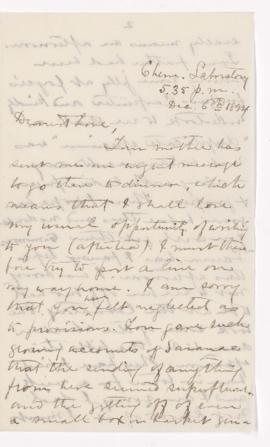 Chem. Laboratory
5.35 p.m.
Dec. 6th 1894
Dearest love,
Your mother has
sent me an urgent message
to go there to dinner, which
means that I shall lose
my usual opportunity of writing
to you (after tea). I must there-
fore try to post a line on
my way home. I am sorry
that you have felt neglected as
to provisions. You gave such
glowing accounts of Saranac
that the sending of anything
from here seemed superfluous
and the getting off of even
a small box in Market